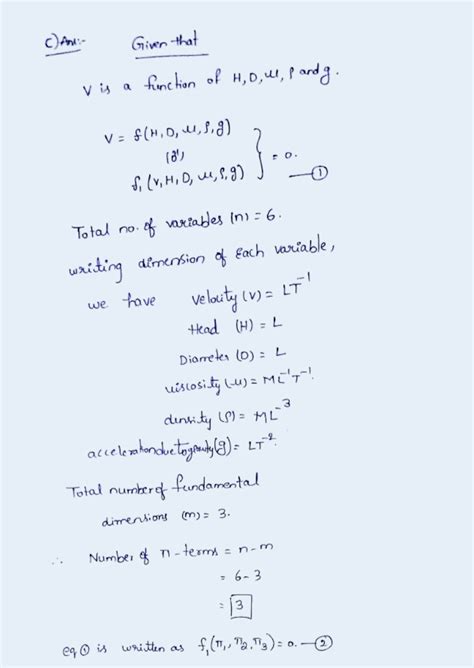 C) Ans:- Given that
V is a function of H, D, μ, ρ and g.
V = f(H, D, μ, ρ, g)
(or)
f₁(V, H, D, μ, ρ, g) } = 0. —①
Total no. of variables (n) = 6.
writing dimension of Each variable,
we have Velocity (V) = LT⁻¹
Head (H) = L
Diameter (D) = L
viscosity (μ) = ML⁻¹T⁻¹.
density (ρ) = ML⁻³
acceleration due to gravity (g) = LT⁻².
Total number of fundamental
dimensions (m) = 3.
∴ Number of π-terms = n-m
= 6-3
= 3
eq ① is written as f₁(π₁, π₂, π₃) = 0. —②